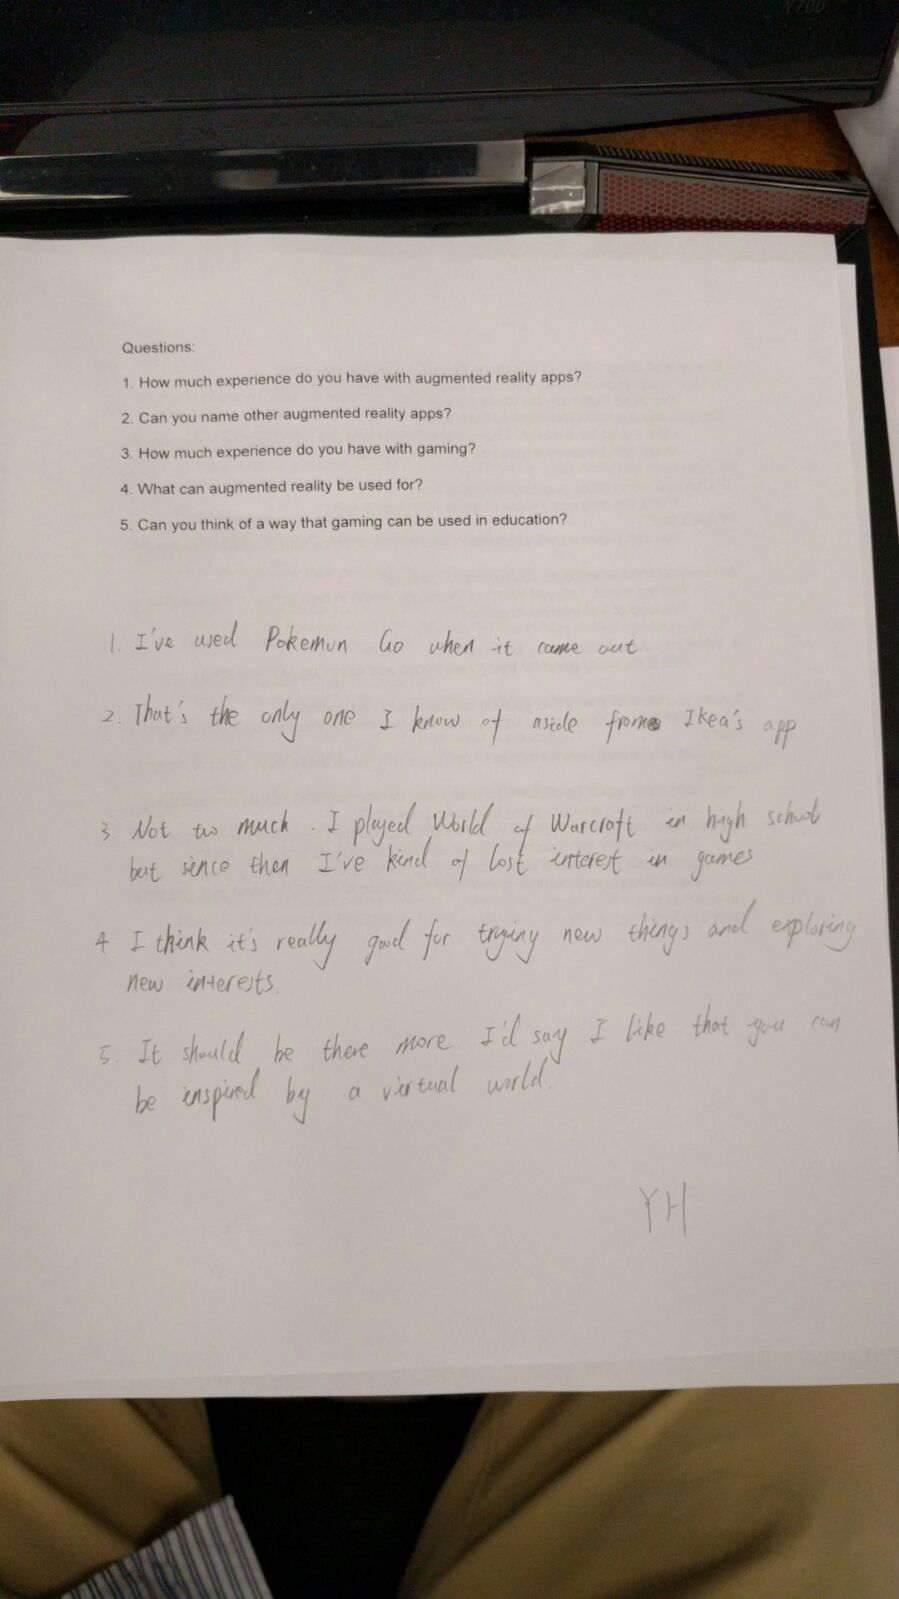 Y700
Questions:
1. How much experience do you have with augmented reality apps?
2. Can you name other augmented reality apps?
3. How much experience do you have with gaming?
4. What can augmented reality be used for?
5. Can you think of a way that gaming can be used in education?
1. I've used Pokemon Go when it came out
2. That's the only one I know of aside from Ikea's app
3. Not too much. I played World of Warcraft in high school
but since then I've kind of lost interest in games
4 I think it's really good for trying new things and exploring
new interests.
5. It should be there more. I'd say I like that you can
be inspired by a virtual world.
YH